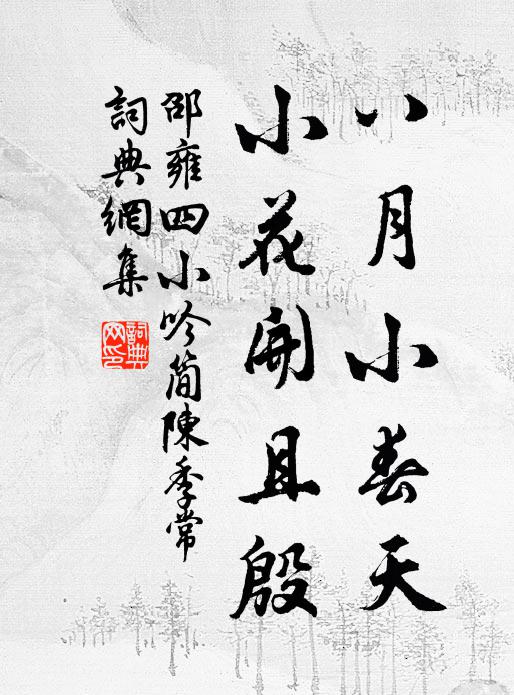 八月小春天
小花開且殷
邵雍四小吟簡陳季常
詞典網集
詞典网印